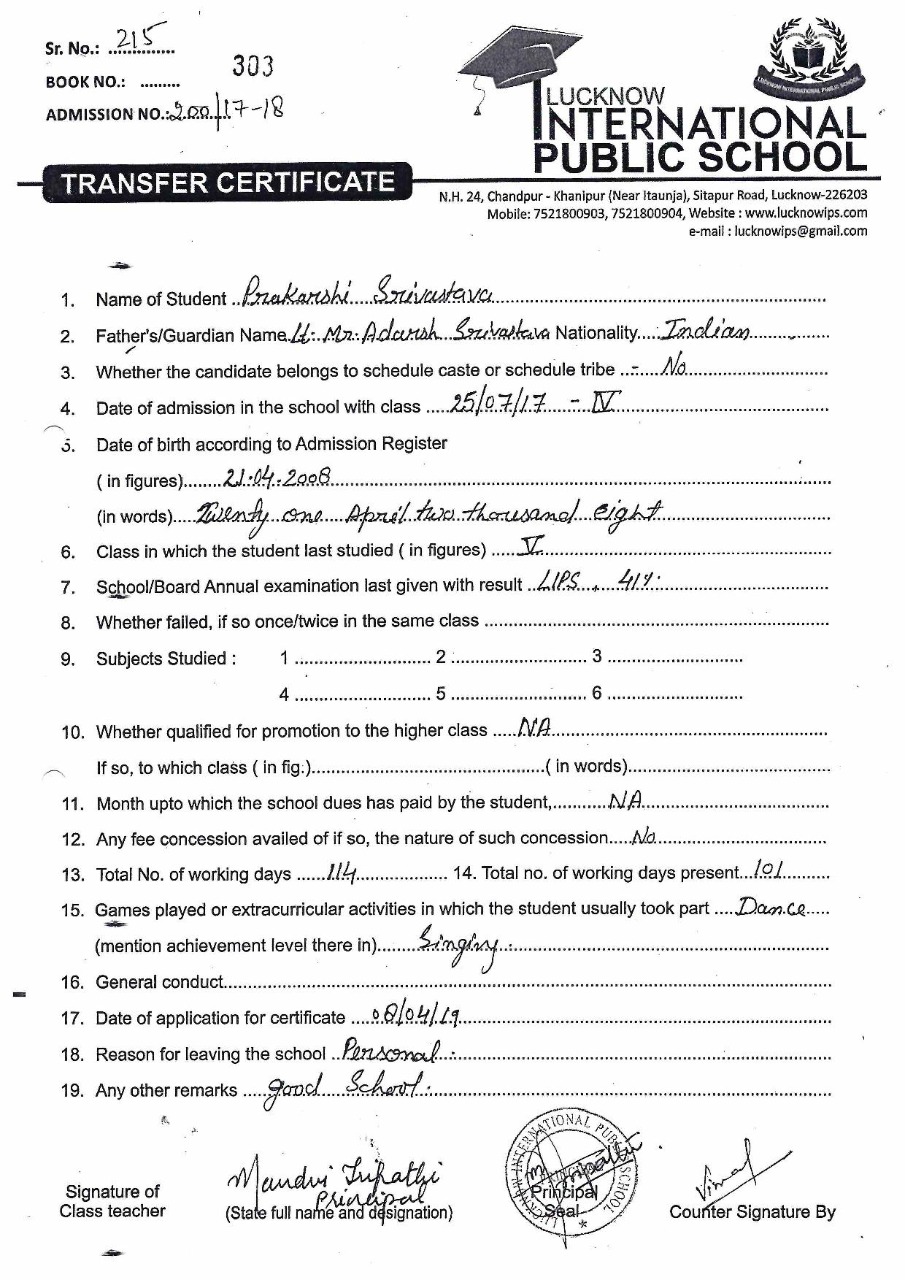 Sr. No.: 215
303
BOOK NO.: .........
ADMISSION NO.: 200/17-18
LUCKNOW INTERNATIONAL PUBLIC SCHOOL
LUCKNOW
INTERNATIONAL
PUBLIC SCHOOL
TRANSFER CERTIFICATE
N.H. 24, Chandpur - Khanipur (Near Itaunja), Sitapur Road, Lucknow-226203
Mobile: 7521800903, 7521800904, Website : www.lucknowips.com
e-mail : lucknowips@gmail.com
1. Name of Student Prakarshi Srivastava
2. Father's/Guardian Name Lt. Mr. Adarsh Srivastava Nationality Indian
3. Whether the candidate belongs to schedule caste or schedule tribe - No
4. Date of admission in the school with class 25/07/17 - IV
5. Date of birth according to Admission Register
( in figures) 21.04.2008
(in words) Twenty one April two thousand eight
6. Class in which the student last studied ( in figures) V
7. School/Board Annual examination last given with result LIPS, 41%
8. Whether failed, if so once/twice in the same class
9. Subjects Studied : 1 2 3
4 5 6
10. Whether qualified for promotion to the higher class NA
If so, to which class ( in fig.) ( in words)
11. Month upto which the school dues has paid by the student, NA
12. Any fee concession availed of if so, the nature of such concession No
13. Total No. of working days 114 14. Total no. of working days present 101
15. Games played or extracurricular activities in which the student usually took part Dance
(mention achievement level there in) Singing
16. General conduct
17. Date of application for certificate 08/04/19
18. Reason for leaving the school Personal
19. Any other remarks good School
Mandvi Tripathi
Principal
Signature of
Class teacher
(State full name and designation)
LUCKNOW INTERNATIONAL PUBLIC SCHOOL
M Tripathi
Principal
Seal
Vimal
Counter Signature By